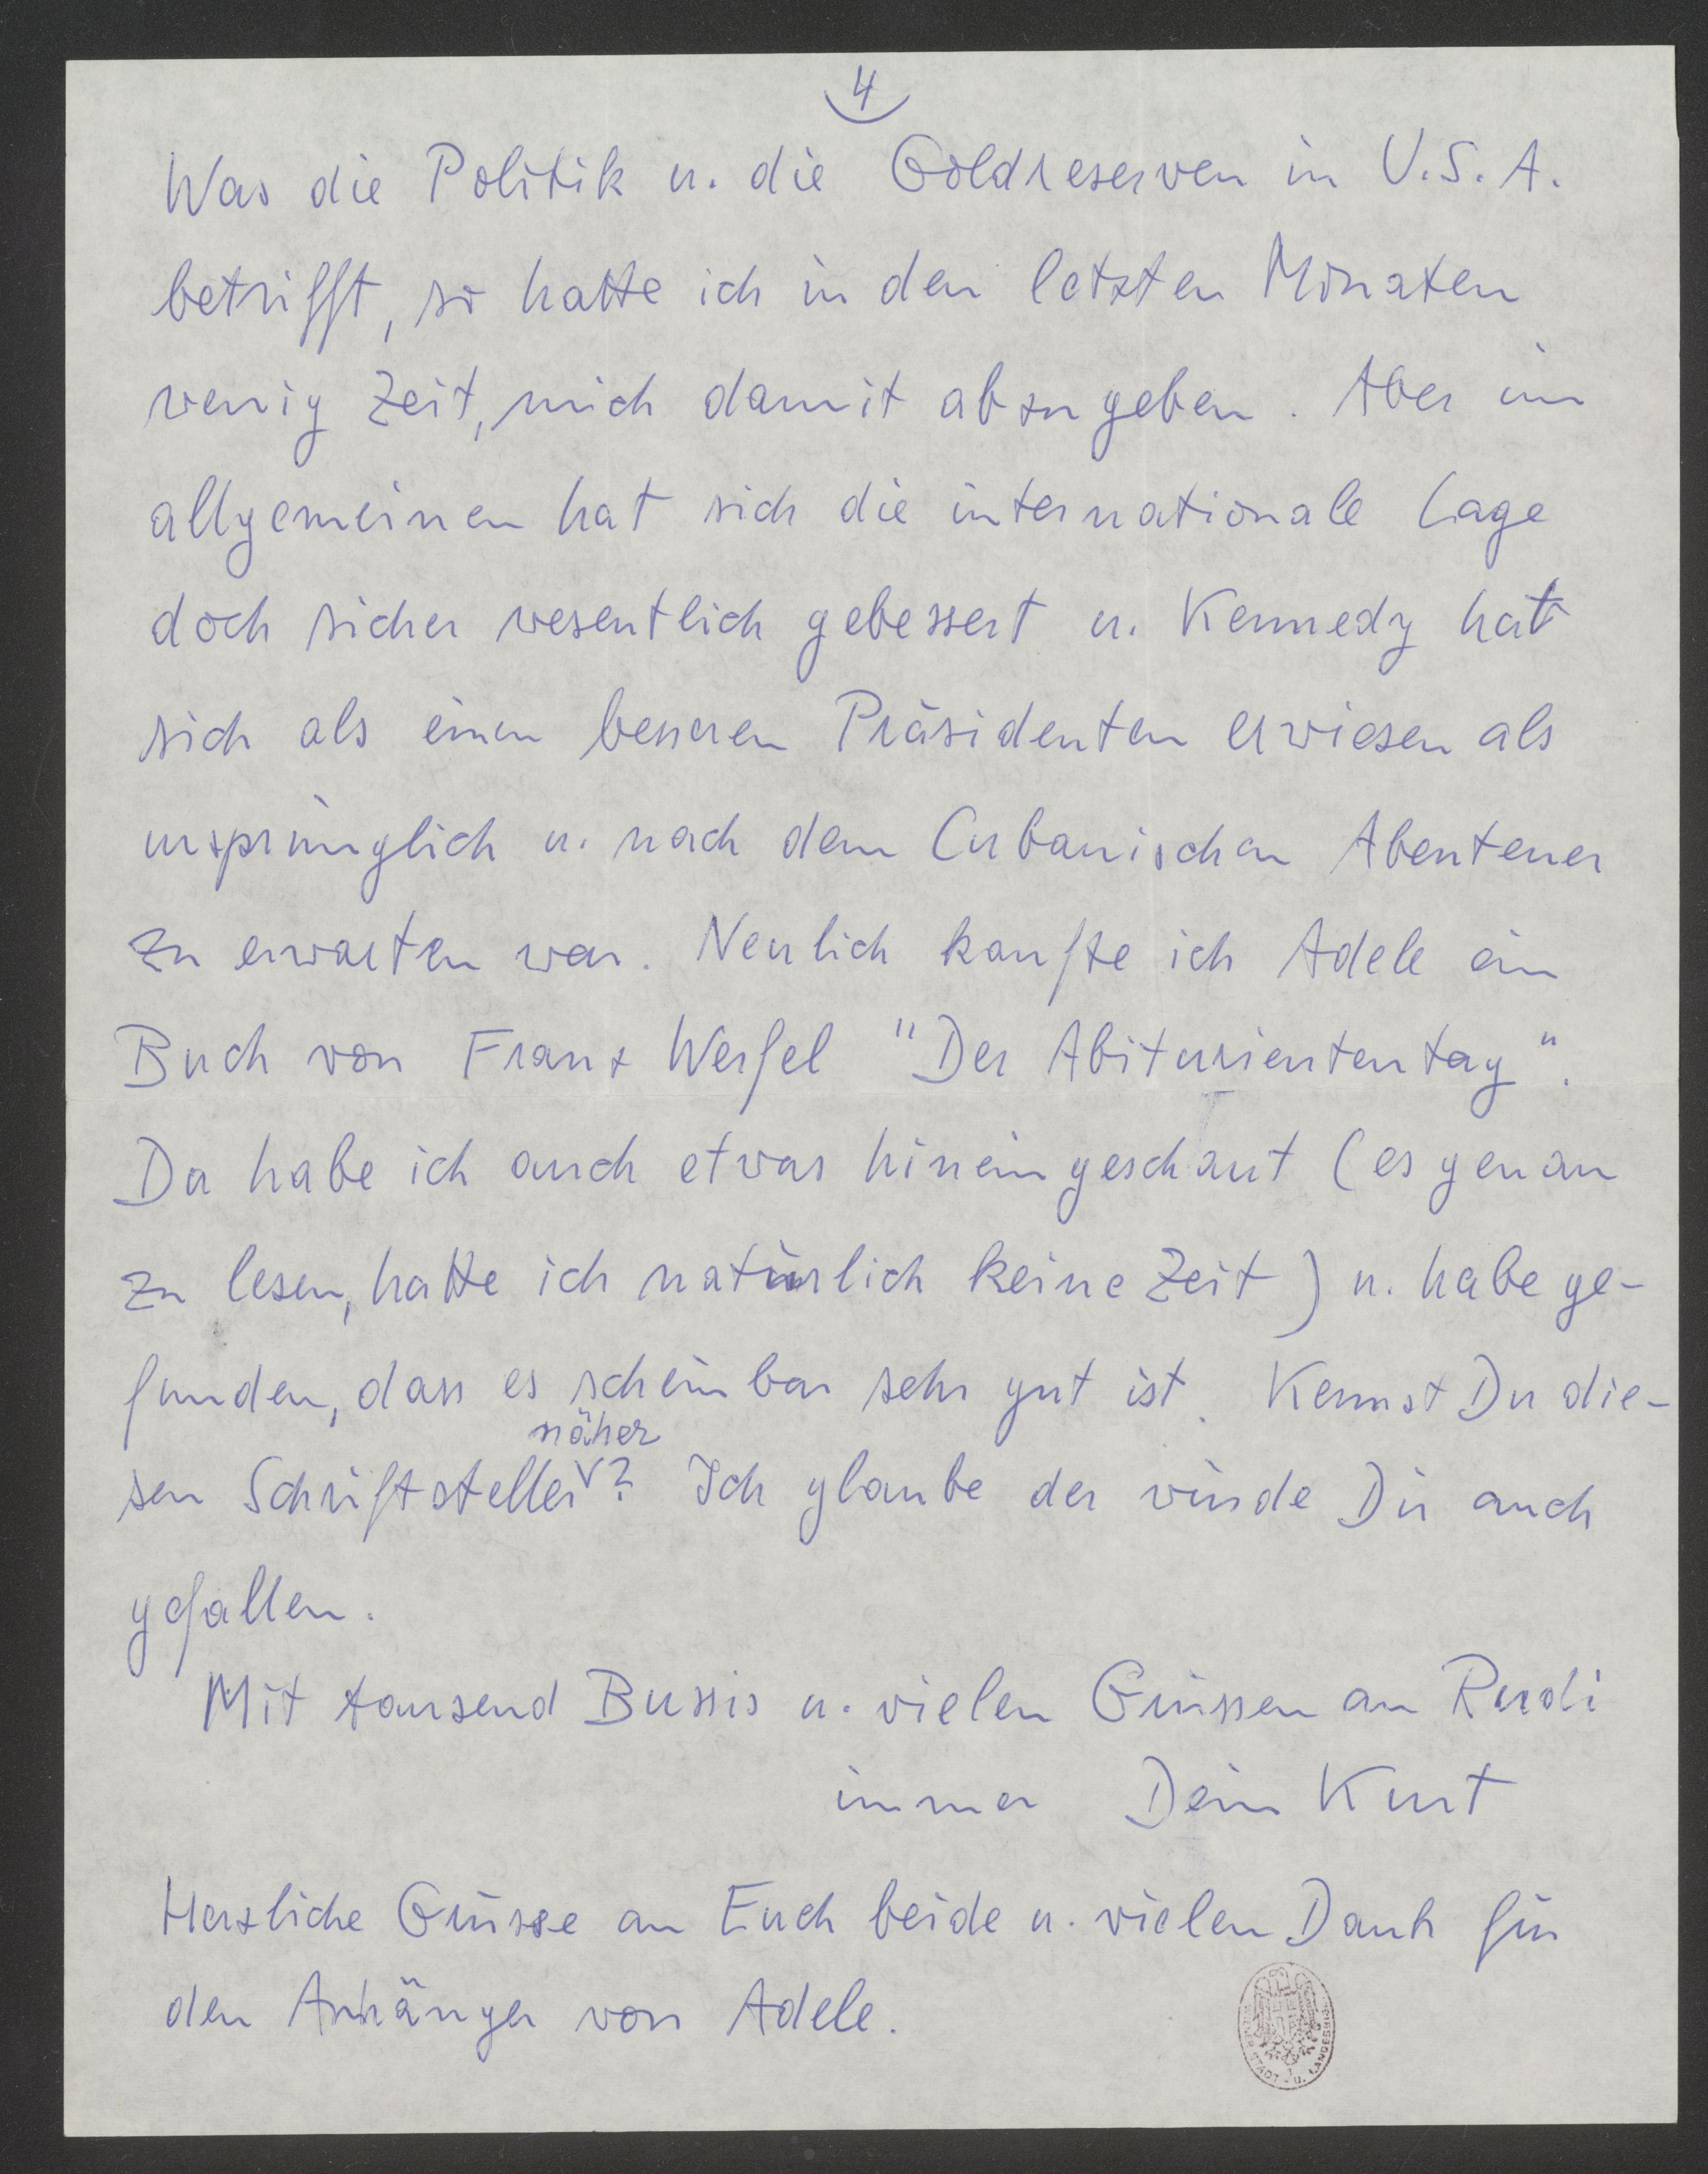 4
Was die Politik u. die Goldreserven in U.S.A.
betrifft, so hatte ich in den letzten Monaten
wenig Zeit, mich damit abzugeben. Aber im
allgemeinen hat sich die internationale Lage
doch sicher wesentlich gebessert u. Kennedy hat
sich als einen besseren Präsidenten erwiesen als
ursprünglich u. nach dem Cubanischen Abenteuer
zu erwarten war. Neulich kaufte ich Adele ein
Buch von Franz Werfel "Der Abituriententag".
Da habe ich auch etwas hineingeschaut (es genau
zu lesen, hatte ich natürlich keine Zeit) u. habe ge-
funden, dass es scheinbar sehr gut ist. Kennst Du die-
näher
sen Schriftsteller? Ich glaube der würde Dir auch
gefallen.
Mit tausend Bussis u. vielen Grüssen an Rudi
immer Dein Kurt
Herzliche Grüsse an Euch beide u. vielen Dank für
den Anhänger von Adele.
STADT- U. LANDESBIB